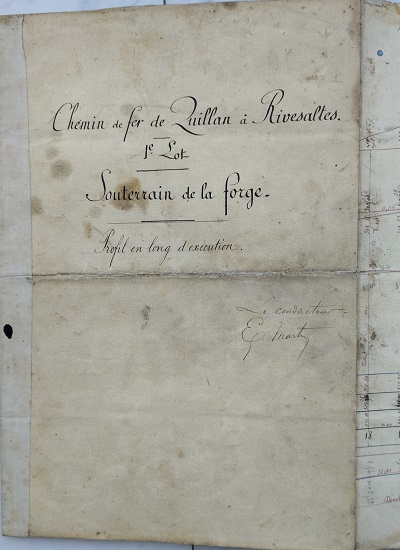 Chemin de fer de Quillan à Rivesaltes.
1e Lot
Souterrain de la forge.
Profil en long d'execution.
Le conducteur
18